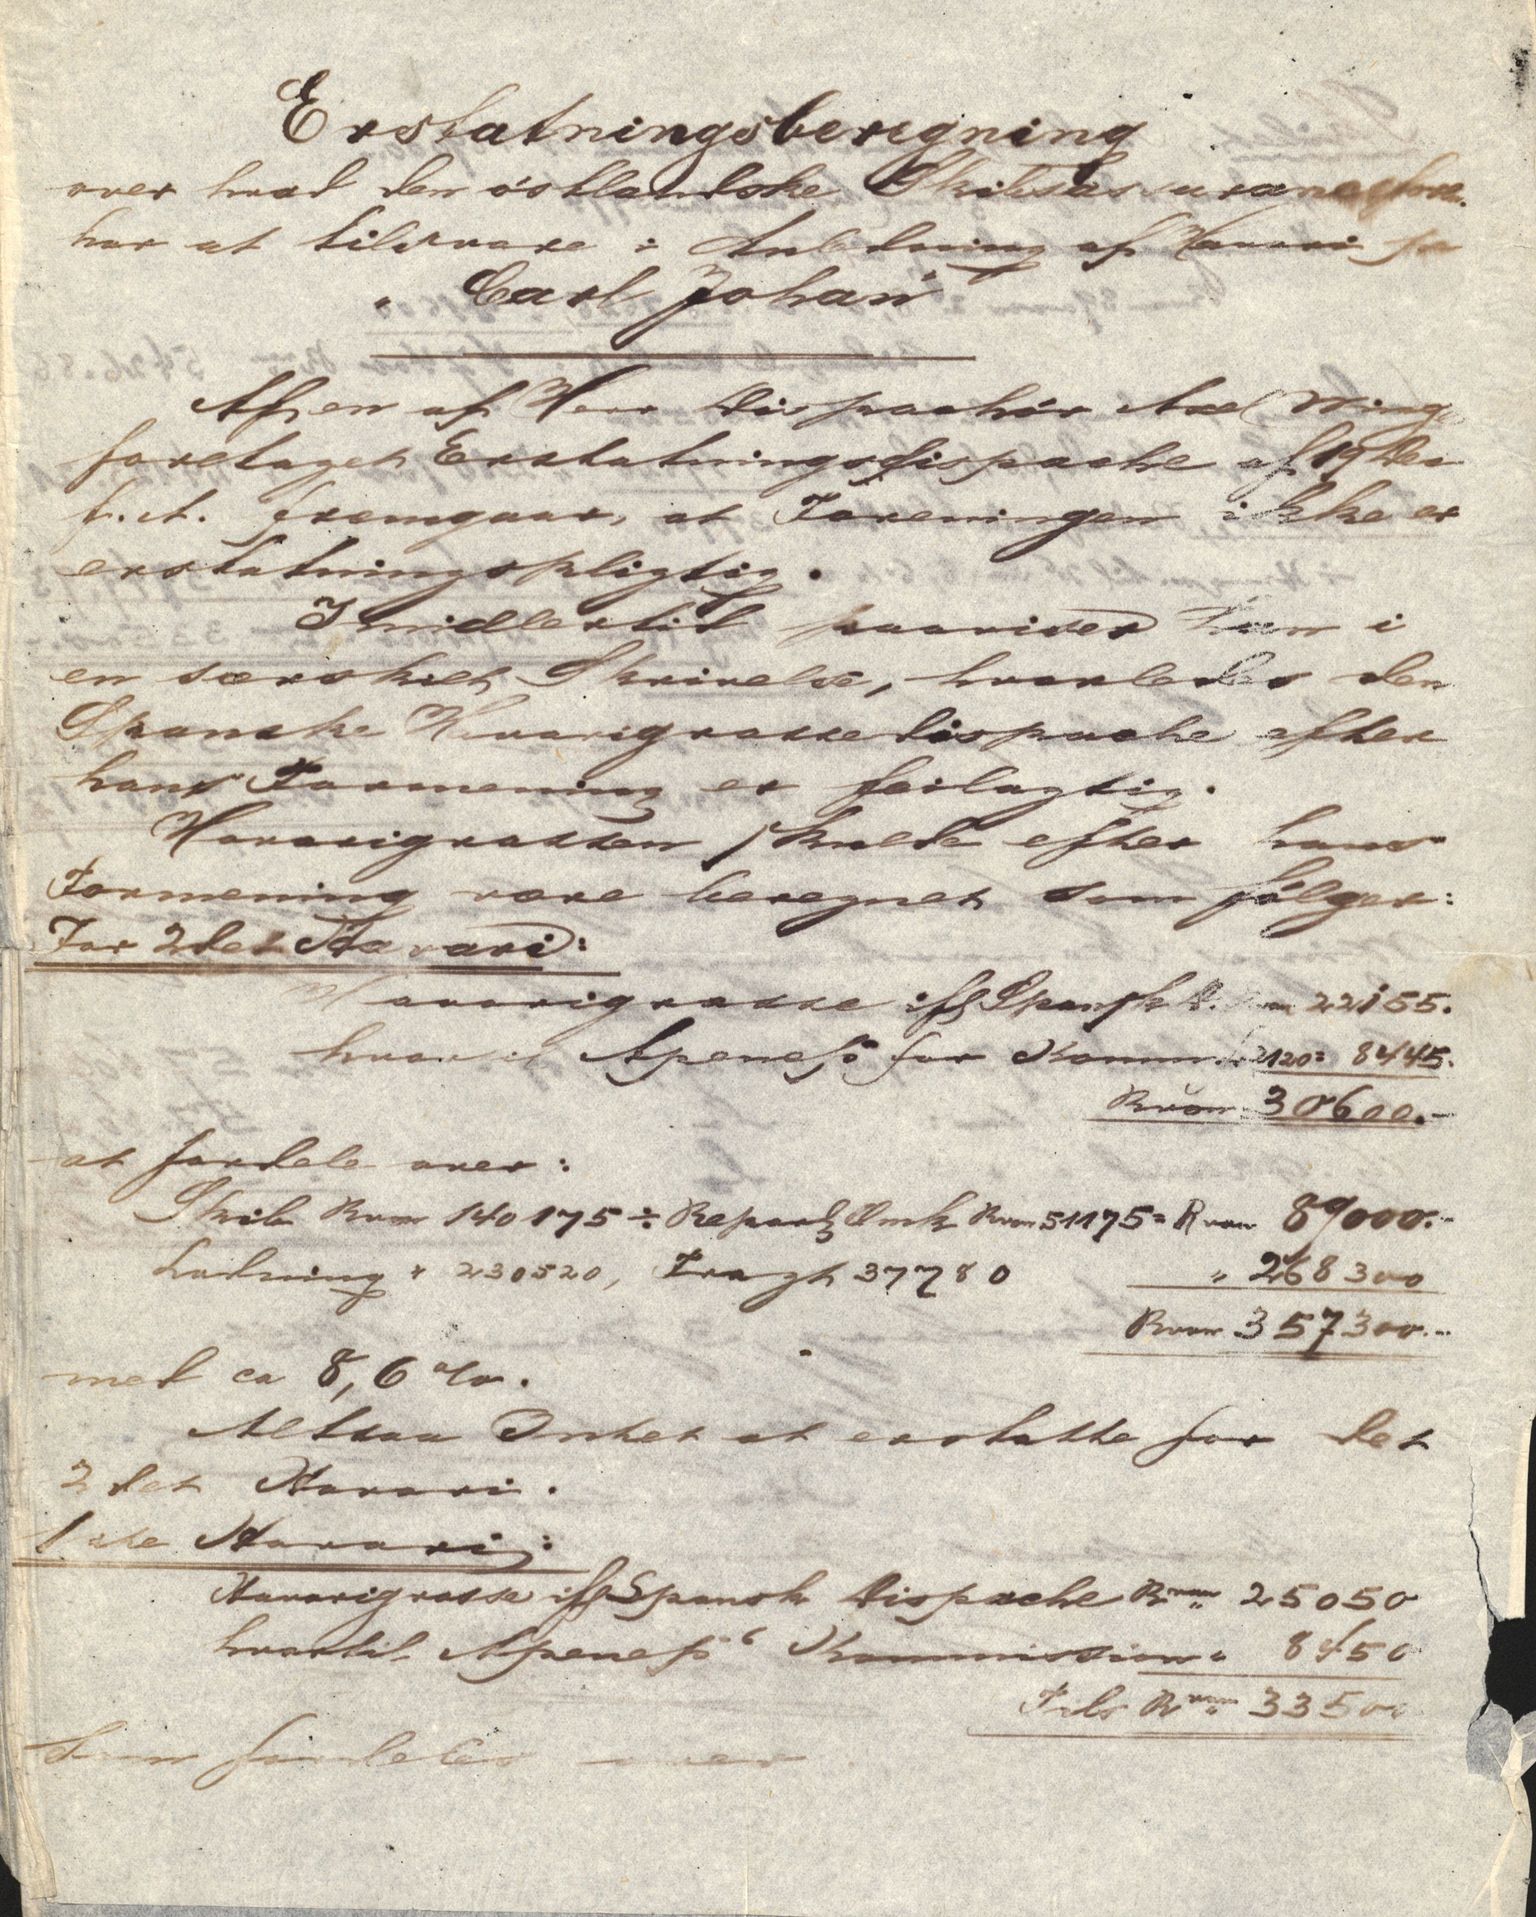 Erstatningsberegning
over hvad den östlandske Skibsassuranceforen.
har at tilsvare i Anledning af Havari paa
"Carl Johan"
Af en af Herr Dispachör Axel Winge
foretaget Erstatningsdispache af 19 des
f. A. fremgaar, at Foreningen ikke er
erstatningspligtig.
Imidlertid paaviser han i
en særskilt Skrivelse, hvorledes den
Spanske Havarigrossedispache efter
hans Formening er feilagtig.
Havarigrossen skulde efter hans
Formening være beregnet som fölger:
For 2det Havari:
Havarigrosse iflg Spansk D. Rvon 22155.
hvortil Apeneß for Komm. 2120= 8445.
Rvon 30600.-
at fordele over:
Skib Rvon 140175 ÷ Repart Omk Rvon 51175 = Rvon 89000.-
Ladning " 230520, Fragt 37780 " 268300
Rvon 357300.-
med ca 8,6 %.
Altsaa Intet at erstatte for det
2det Havari.
1ste Havari:
Havarigrosse iflg Spansk Dispache Rvon 25050
hvortil Apeneß' Kommission " 8450
Tils Rvon 33500
Som fordeles over